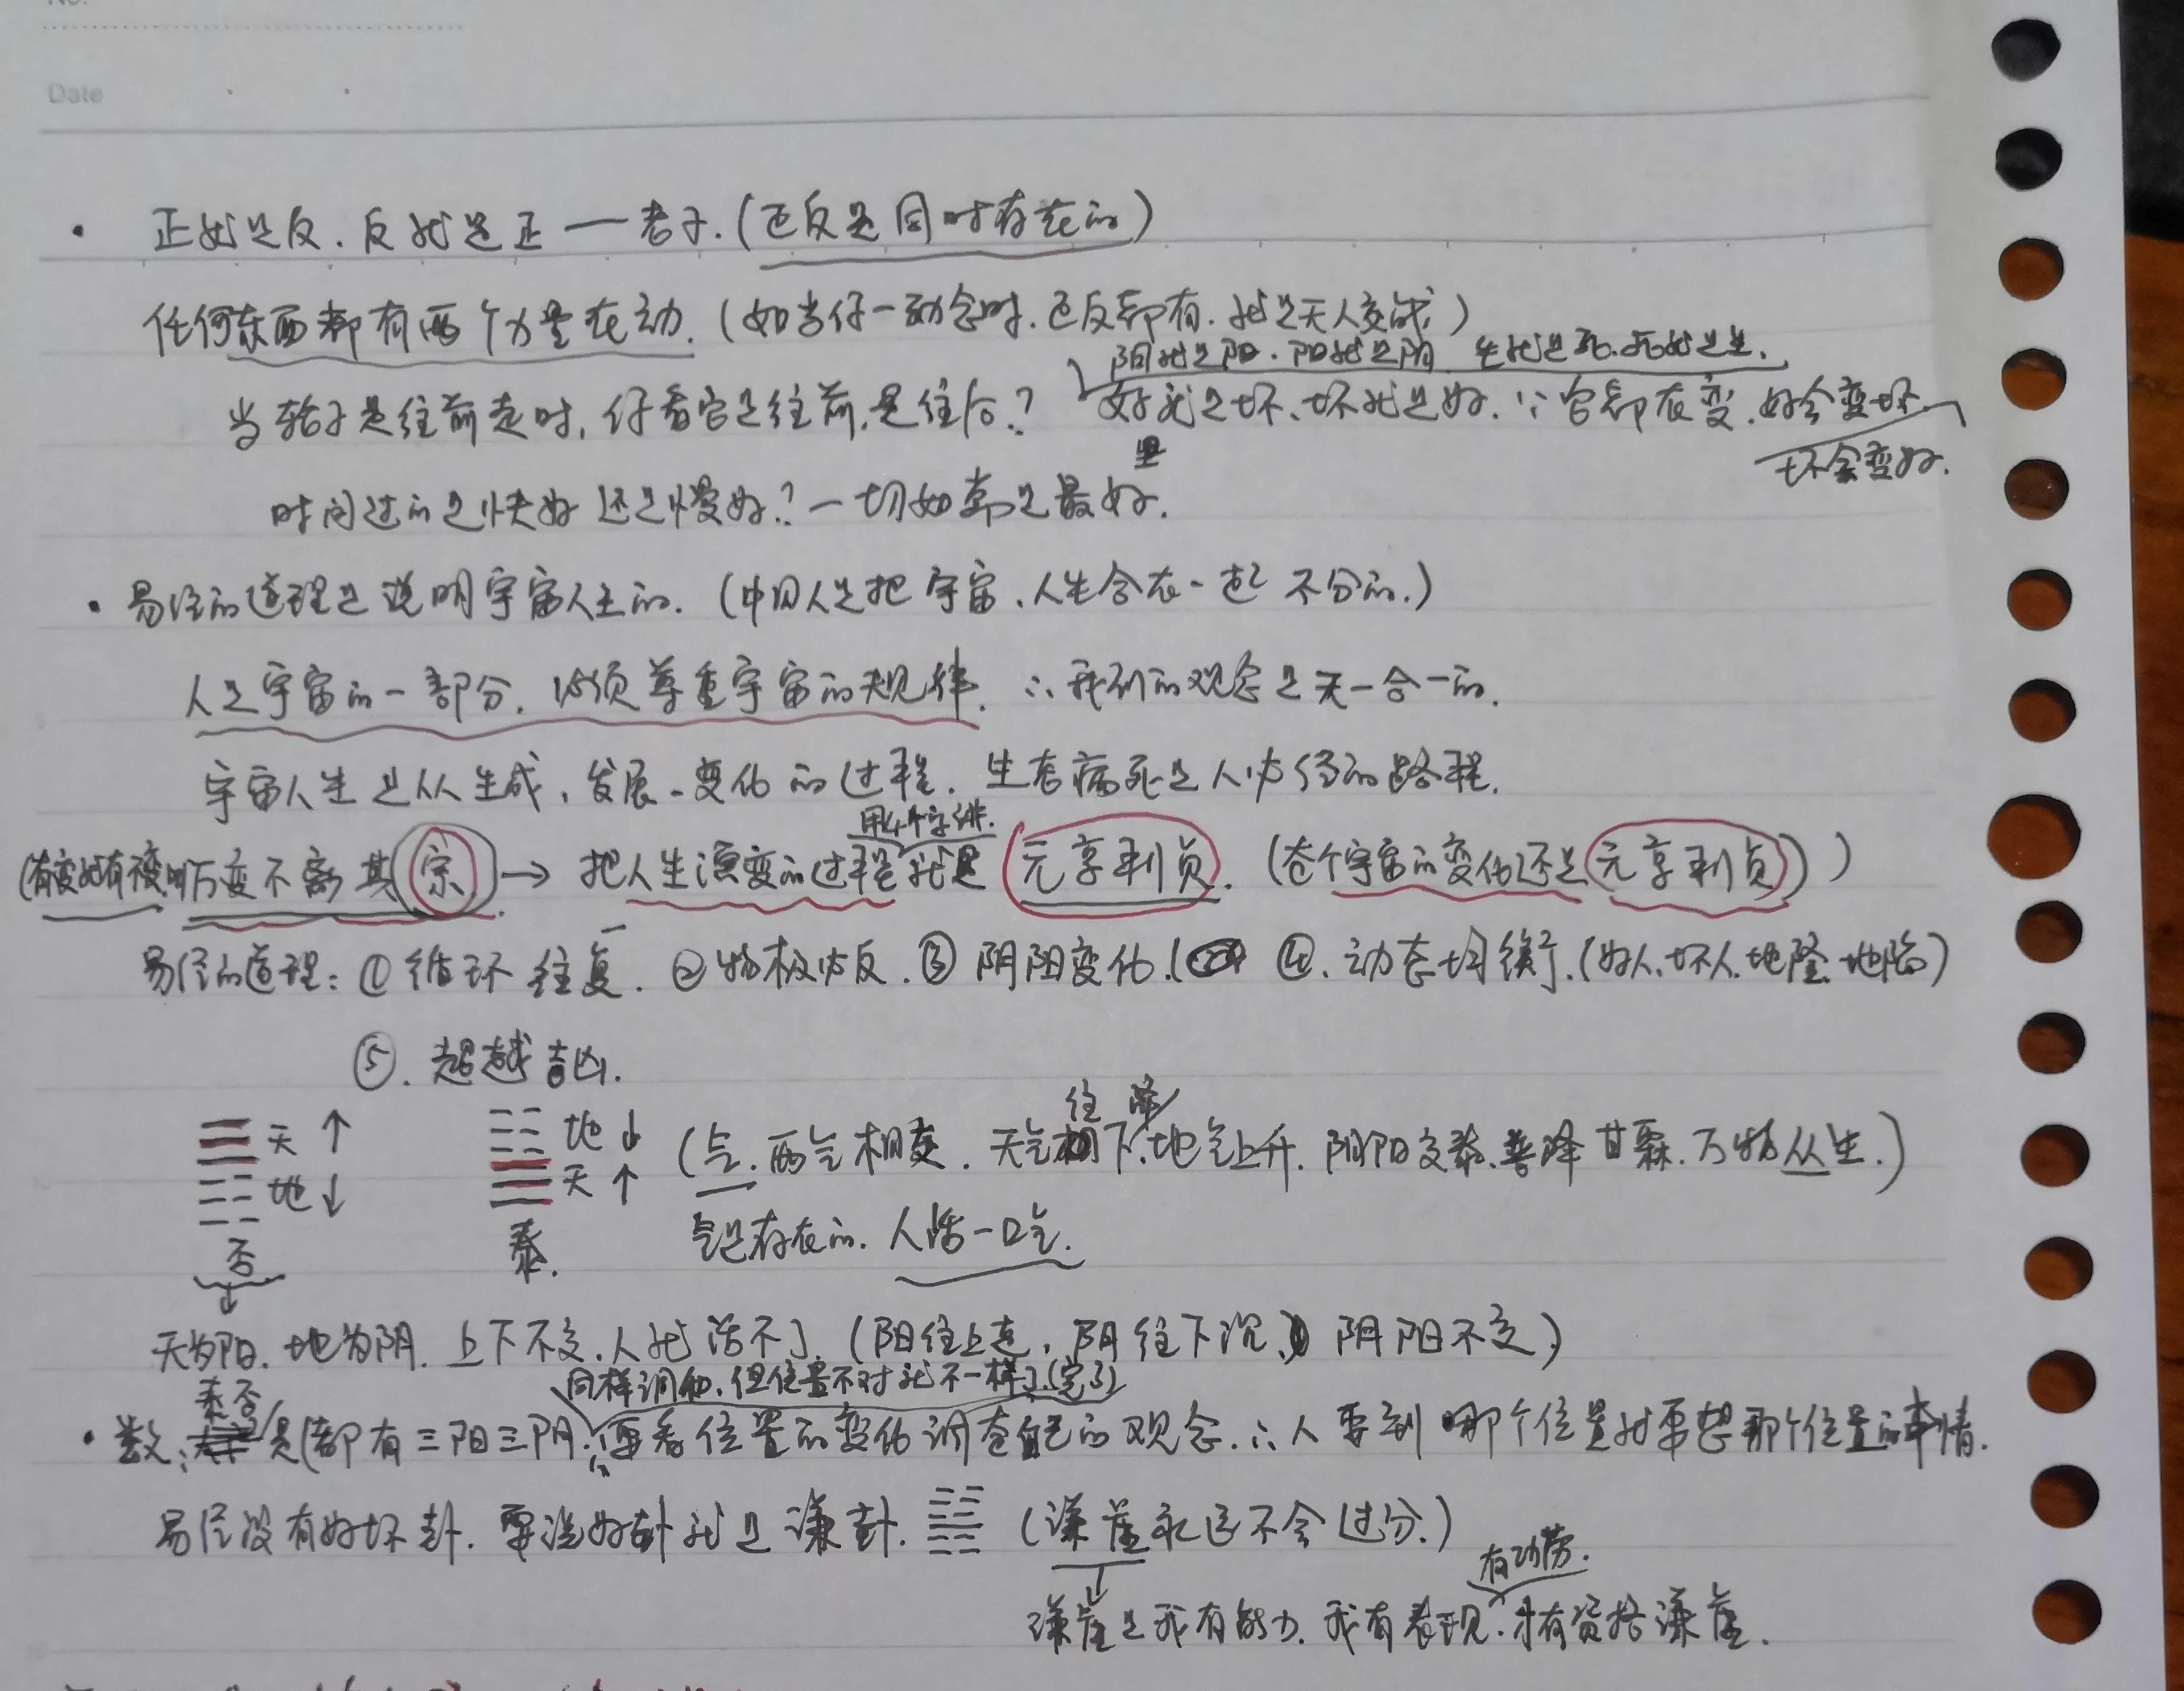 Date
· 正就是反.反就是正——老子.(正反是同时存在的)
任何东西都有两个力量在动.(如当你一动念时.正反都有.就是天人交战)
阴就是阳.阳就是阴 生就是死.死就是生.
当轮子是往前走时,你看它是往前,是往后? 好就是坏、坏就是好.∵它都在变.好会变坏
坏会变好.
时间过的是快好还是慢好?一切如常是最好.
· 易经的道理是说明宇宙人生的.(中国人是把宇宙、人生合在一起不分的.)
人是宇宙的一部分.必须尊重宇宙的规律.∴我们的观念是天一合一的.
宇宙人生是从生成、发展、变化的过程.生老病死是人必经的路程.
用4个字讲.
(有变就有不变,叫万变不离其宗→把人生演变的过程就是元亨利贞.(整个宇宙的变化还是元亨利贞))
易经的道理:①循环往复.②物极必反.③阴阳变化.④.动态均衡.(好人.坏人.地隆.地陷)
⑤.超越吉凶.
往 降
天↑ 地↓ (气.两气相交.天气下.地气上升.阴阳交泰.普降甘霖.万物丛生.)
地↓ 天↑
否 泰. 气是存在的.人活一口气.
↓
天为阳.地为阴.上下不交.人就活不了.(阳往上走,阴往下沉、阴阳不交)
同样调和,但位置不对就不一样了.(完了)
泰否
· 数:是(都有三阳三阴.要看位置的变化调整自己的观念.∴人要到哪个位置就要想那个位置的事情.
易经没有好坏卦.要说好卦就是谦卦.(谦虚永远不会过分.)
有功劳.
↓
谦虚是我有能力.我有表现.才有资格谦虚.